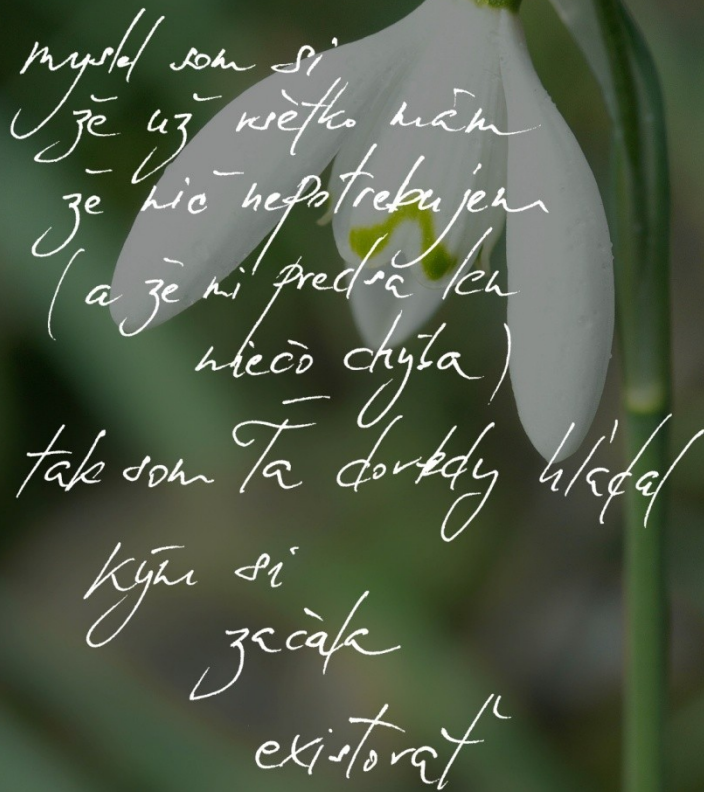 myslel som si
že už všetko mám
že nič nepotrebujem
(a že mi predsa len
niečo chýba)
tak som Ťa dovtedy hľadal
kým si
začala
existovať